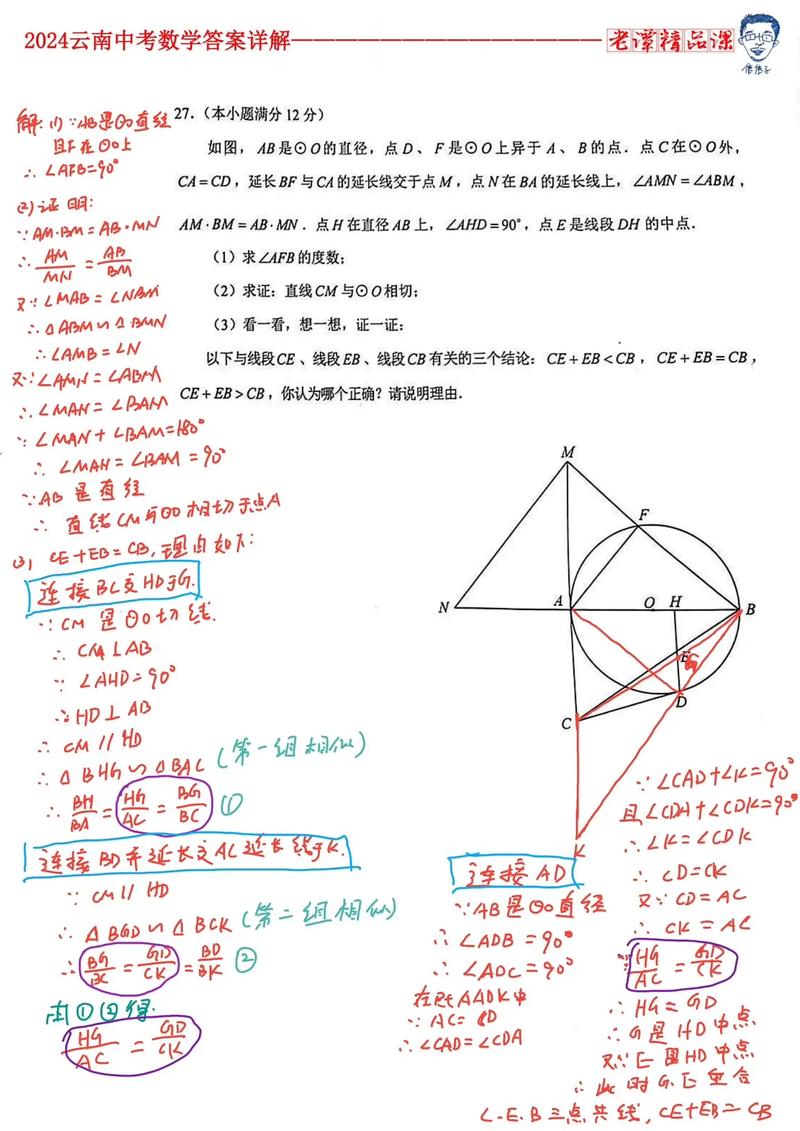 2024云南中考数学答案详解——————————————老谭精品课
27.（本小题满分12分）
如图，AB是⊙O的直径，点D、F是⊙O上异于A、B的点．点C在⊙O外，
CA=CD，延长BF与CA的延长线交于点M，点N在BA的延长线上，∠AMN=∠ABM，
AM·BM=AB·MN．点H在直径AB上，∠AHD=90°，点E是线段DH的中点．
（1）求∠AFB的度数；
（2）求证：直线CM与⊙O相切；
（3）看一看，想一想，证一证：
以下与线段CE、线段EB、线段CB有关的三个结论：CE+EB<CB，CE+EB=CB，
CE+EB>CB，你认为哪个正确？请说明理由．
解：(1)∵AB是⊙O直径
且F在⊙O上
∴∠AFB=90°
(2)证明：
∵AM·BM=AB·MN
∴AM/MN=AB/BM
又∵∠MAB=∠NBM
∴△ABM∽△BMN
∴∠AMB=∠N
又∵∠AMN=∠ABM
∴∠MAN=∠BAM
∵∠MAN+∠BAM=180°
∴∠MAN=∠BAM=90°
∵AB是直径
∴直线CM与⊙O相切于点A
(3) CE+EB=CB,理由如下：
连接BC交HD于G.
∵CM是⊙O切线.
∴CM⊥AB
∵∠AHD=90°
∴HD⊥AB
∴CM//HD
∴△BHG∽△BAC(第一组相似)
∴BH/BA=HG/AC=BG/BC ①
连接BD并延长交AC延长线于K.
∵CM//HD
∴△BGD∽△BCK(第二组相似)
∴BG/BC=GD/CK=BD/BK ②
由①②得.
HG/AC=GD/CK
M
F
N
A
O
H
B
E
G
D
C
K
连接AD
∵AB是⊙O直径
∴∠ADB=90°
∴∠ADC=90°
在Rt△ADK中
∵AC=CD
∴∠CAD=∠CDA
∵∠CAD+∠K=90°
且∠CDA+∠CDK=90°
∴∠K=∠CDK
∴CD=CK
又∵CD=AC
∴CK=AC
∵HG/AC=GD/CK
∴HG=GD
∴G是HD中点
又∵E是HD中点
∴此时G.E重合
C.E.B三点共线,CE+EB=CB